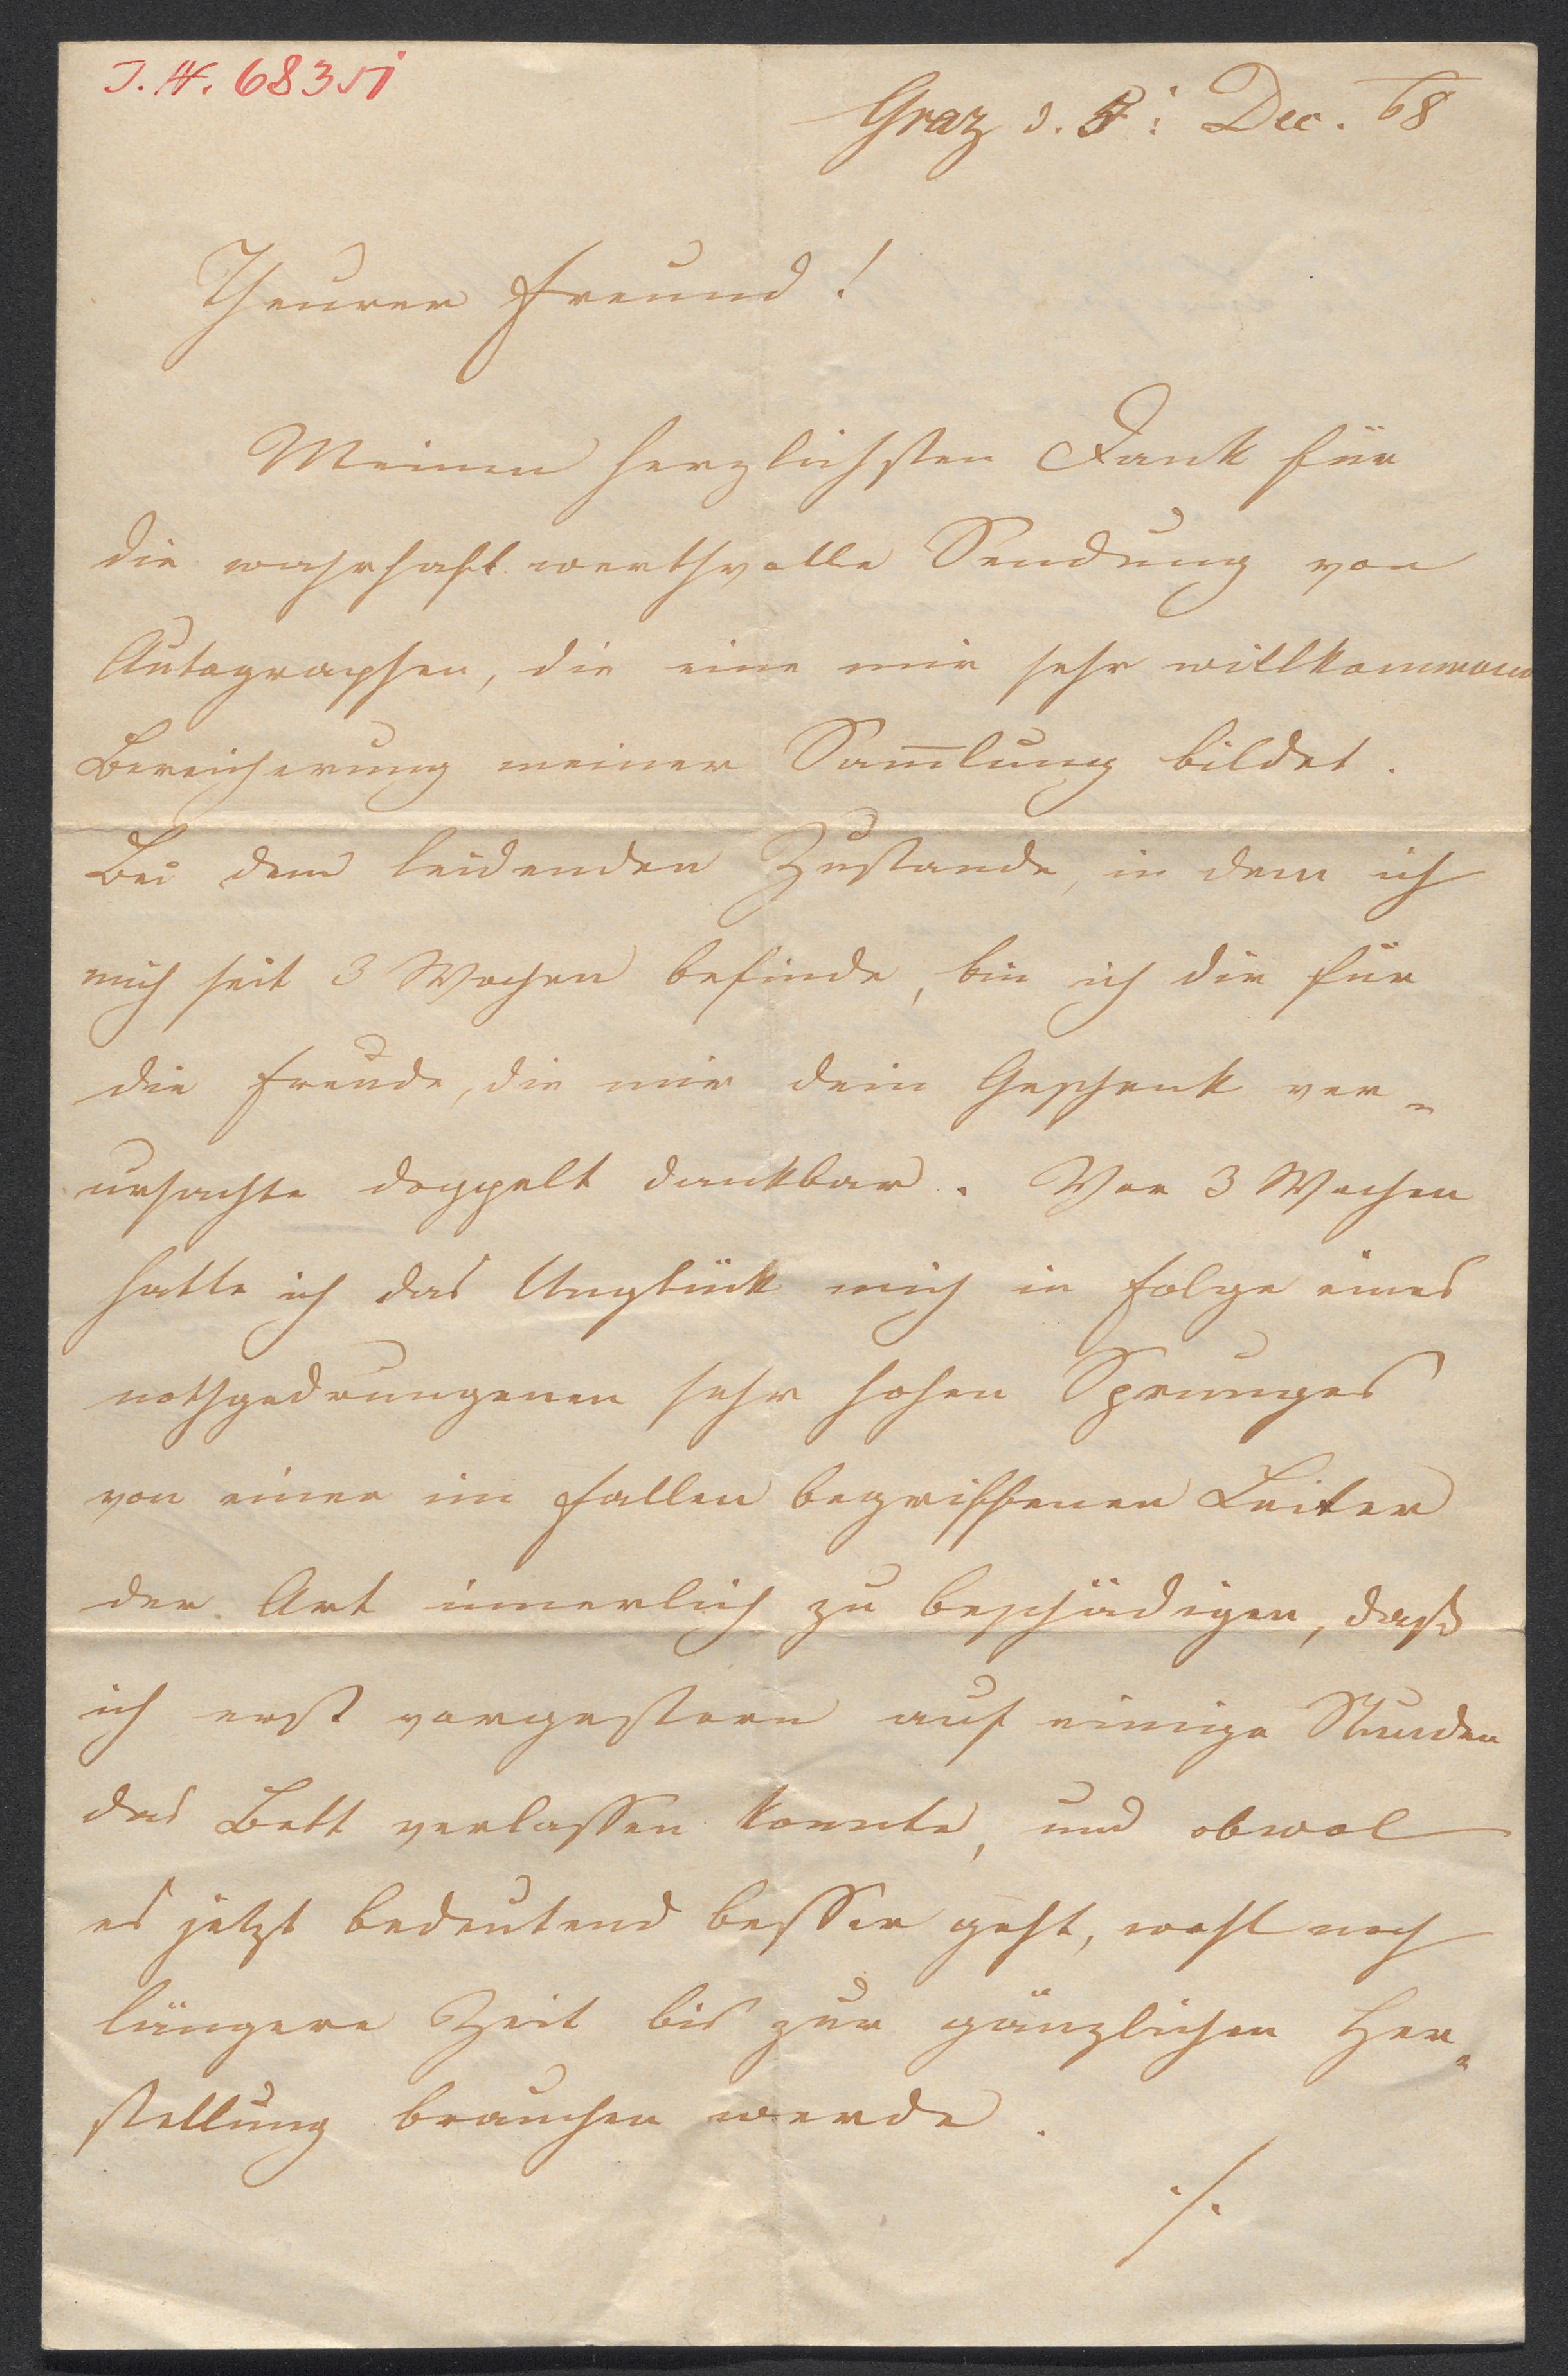 J.N. 68351
Graz d. 5: Dec. 68
Theurer Freund!
Meinen herzlichsten Dank für
die wahrhaft werthvolle Sendung von
Autographen, die eine mir sehr willkommene
Bereicherung meiner Sam̅lung bildet.
Bei dem leidenden Zustande, in dem ich
mich seit 3 Wochen befinde, bin ich dir für
die Freude, die mir dein Geschenk ver-
ursachte doppelt dankbar. Vor 3 Wochen
hatte ich das Unglück mich in Folge eines
nothgedrungenen sehr hohen Sprunges
von einer im Fallen begriffenen Leiter
der Art innerlich zu beschädigen, daß
ich erst vorgestern auf einige Stunden
das Bett verlassen konnte, und obwol
es jetzt bedeutend besser geht, wohl noch
längere Zeit bis zur gänzlichen Her-
stellung brauchen werde.
./.